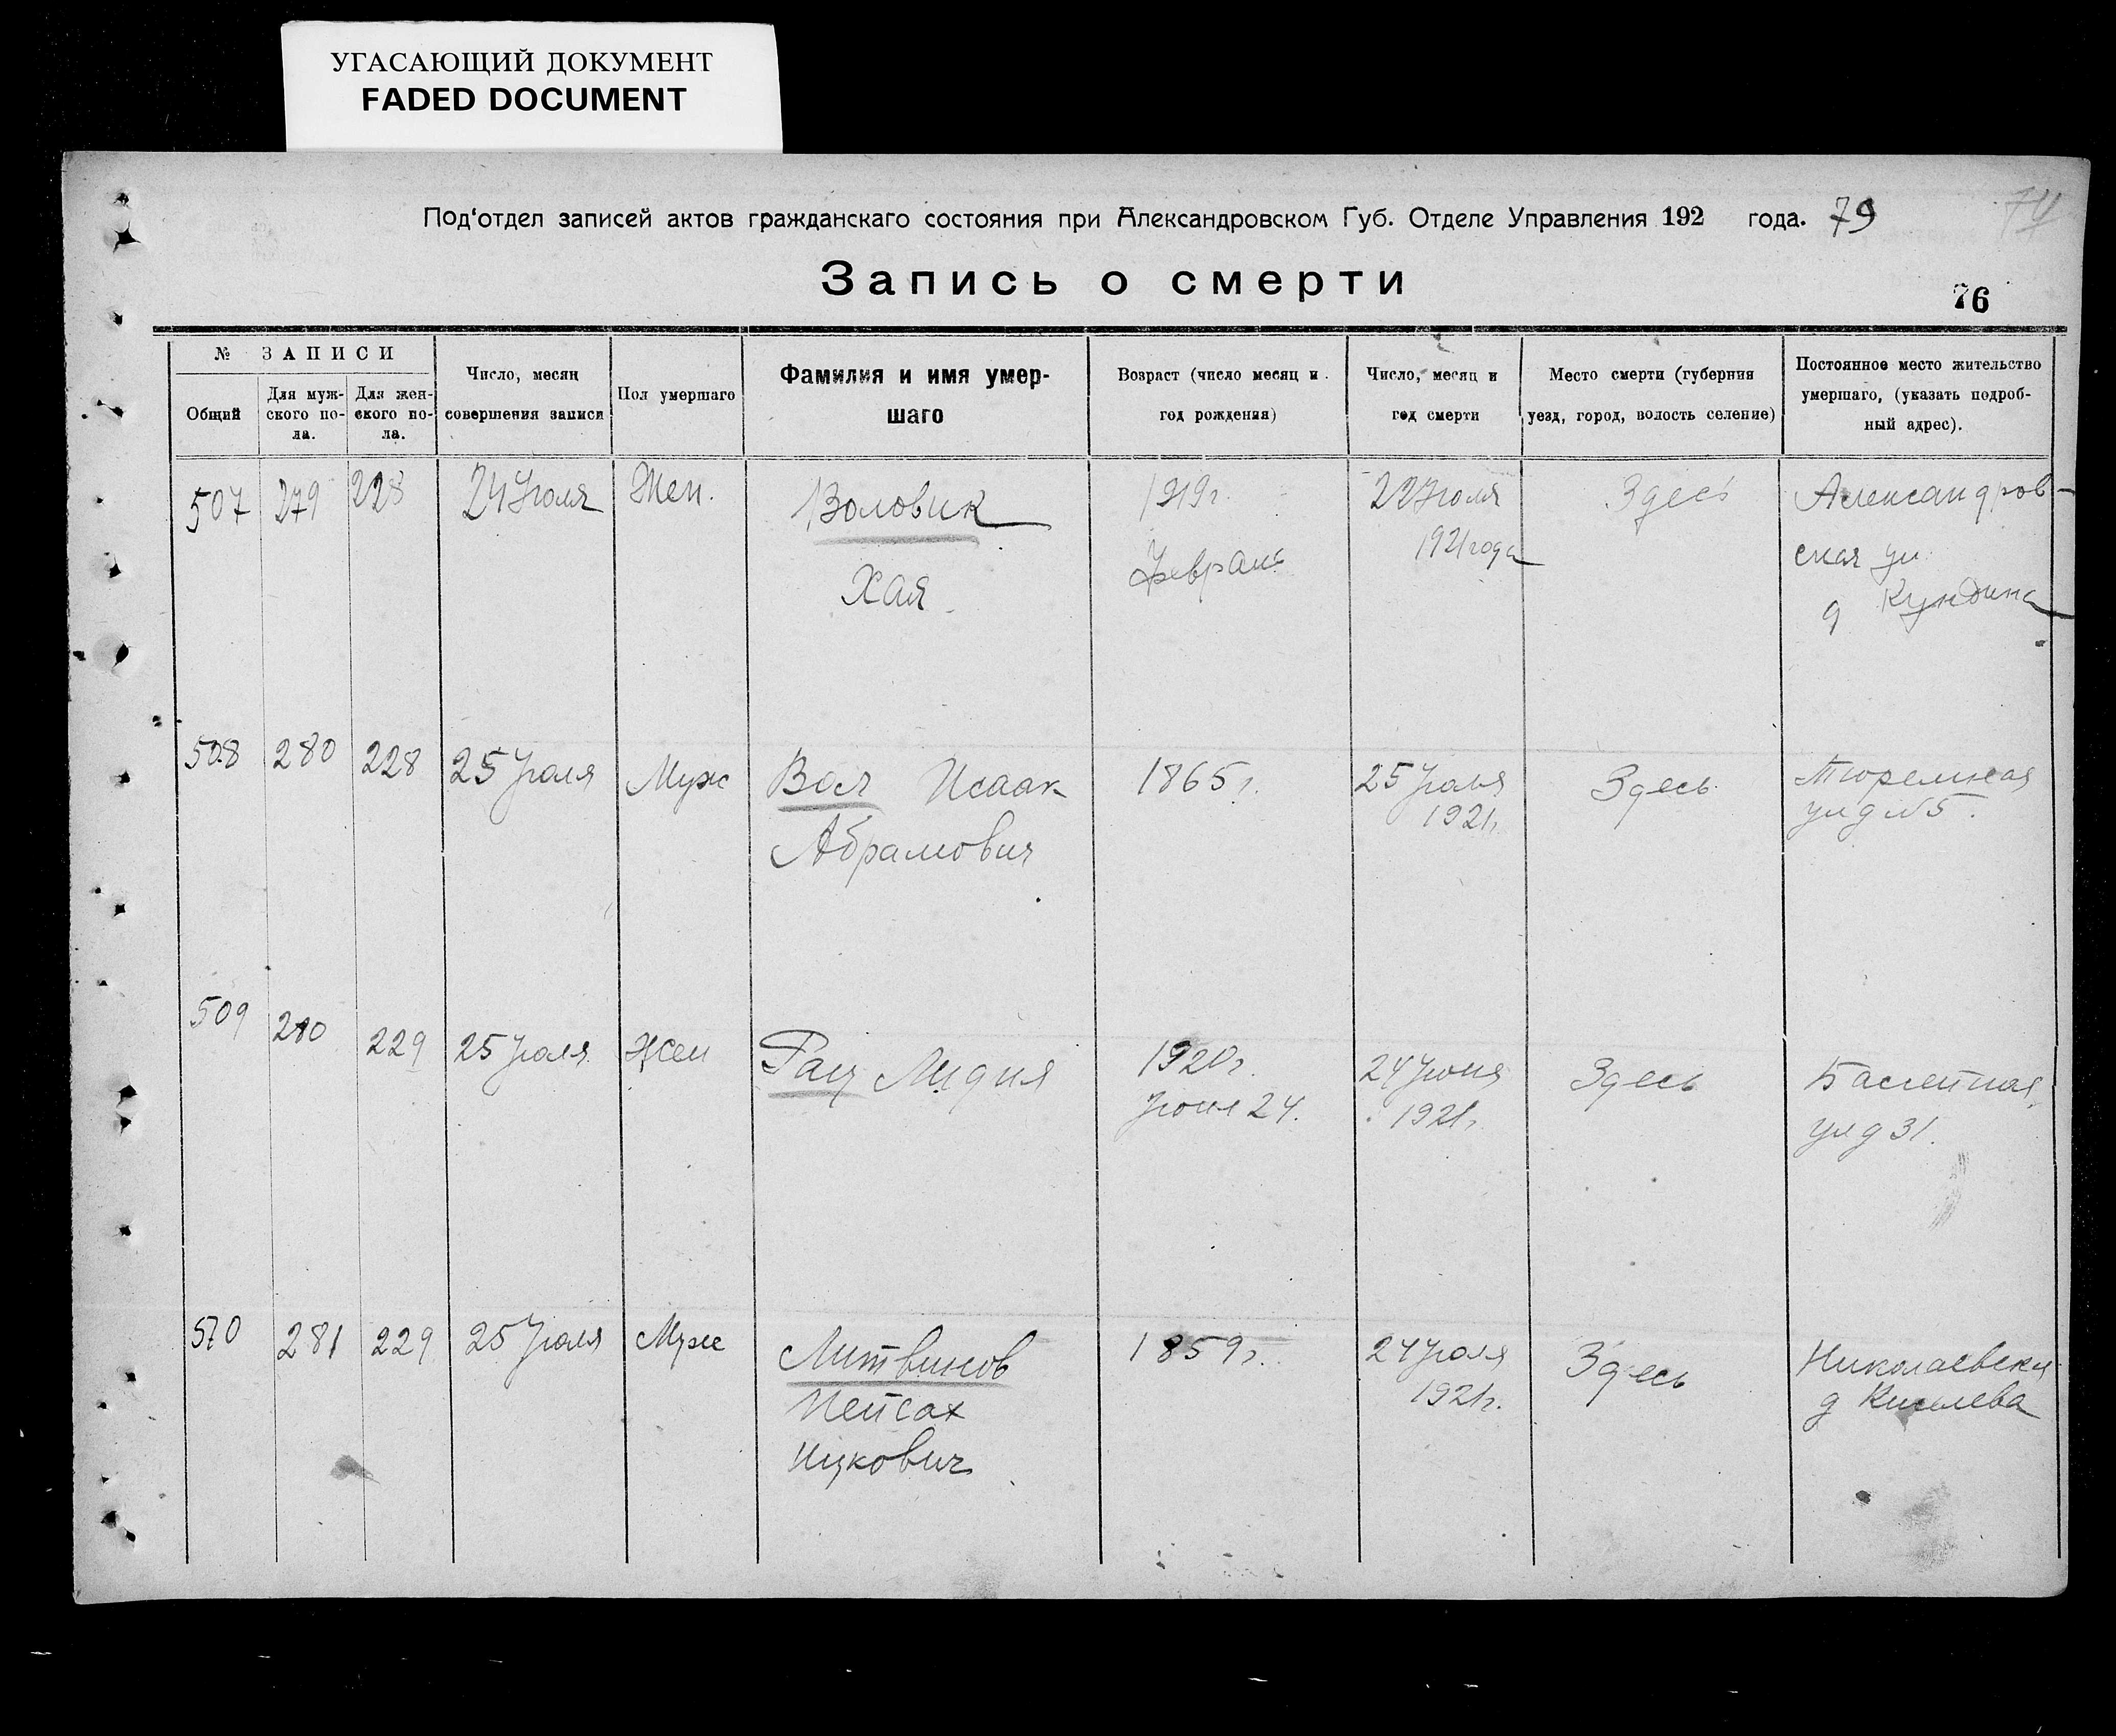 УГАСАЮЩИЙ ДОКУМЕНТ
FADED DOCUMENT
Под'отдел записей актов гражданскаго состояния при Александровском Губ. Отделе Управления 192 года. 79
74
Запись о смерти
76
№ ЗАПИСИ
Общий
Для муж-
ского по-
ла.
Для жен-
ского по-
ла.
Число, месяц
совершения записи
Пол умершаго
Фамилия и имя умер-
шаго
Возраст (число месяц и
год рождения)
Число, месяц и
год смерти
Место смерти (губерния
уезд, город, волость селение)
Постоянное место жительство
умершаго, (указать подроб-
ный адрес).
507 279 228 24 Июля Жен. Воловик 1919г. 22 Июля Здесь Александров-
1921года ская ул
Хая Февраль
д Кундина
508 280 228 25 Июля Муж Вол Исаак 1865г. 25 Июля Здесь Тюремная
Абрамович 1921г. ул д №5.
509 280 229 25 Июля Жен Рац Лидия 1920г. 24 Июня Здесь
Июня 24. 1921г. ул д 31.
570 281 229 25 Июля Муж Литвинов 1859г. 24 Июля Здесь Николаевская
Пейсах 1921г. д Киселева
Ицкович